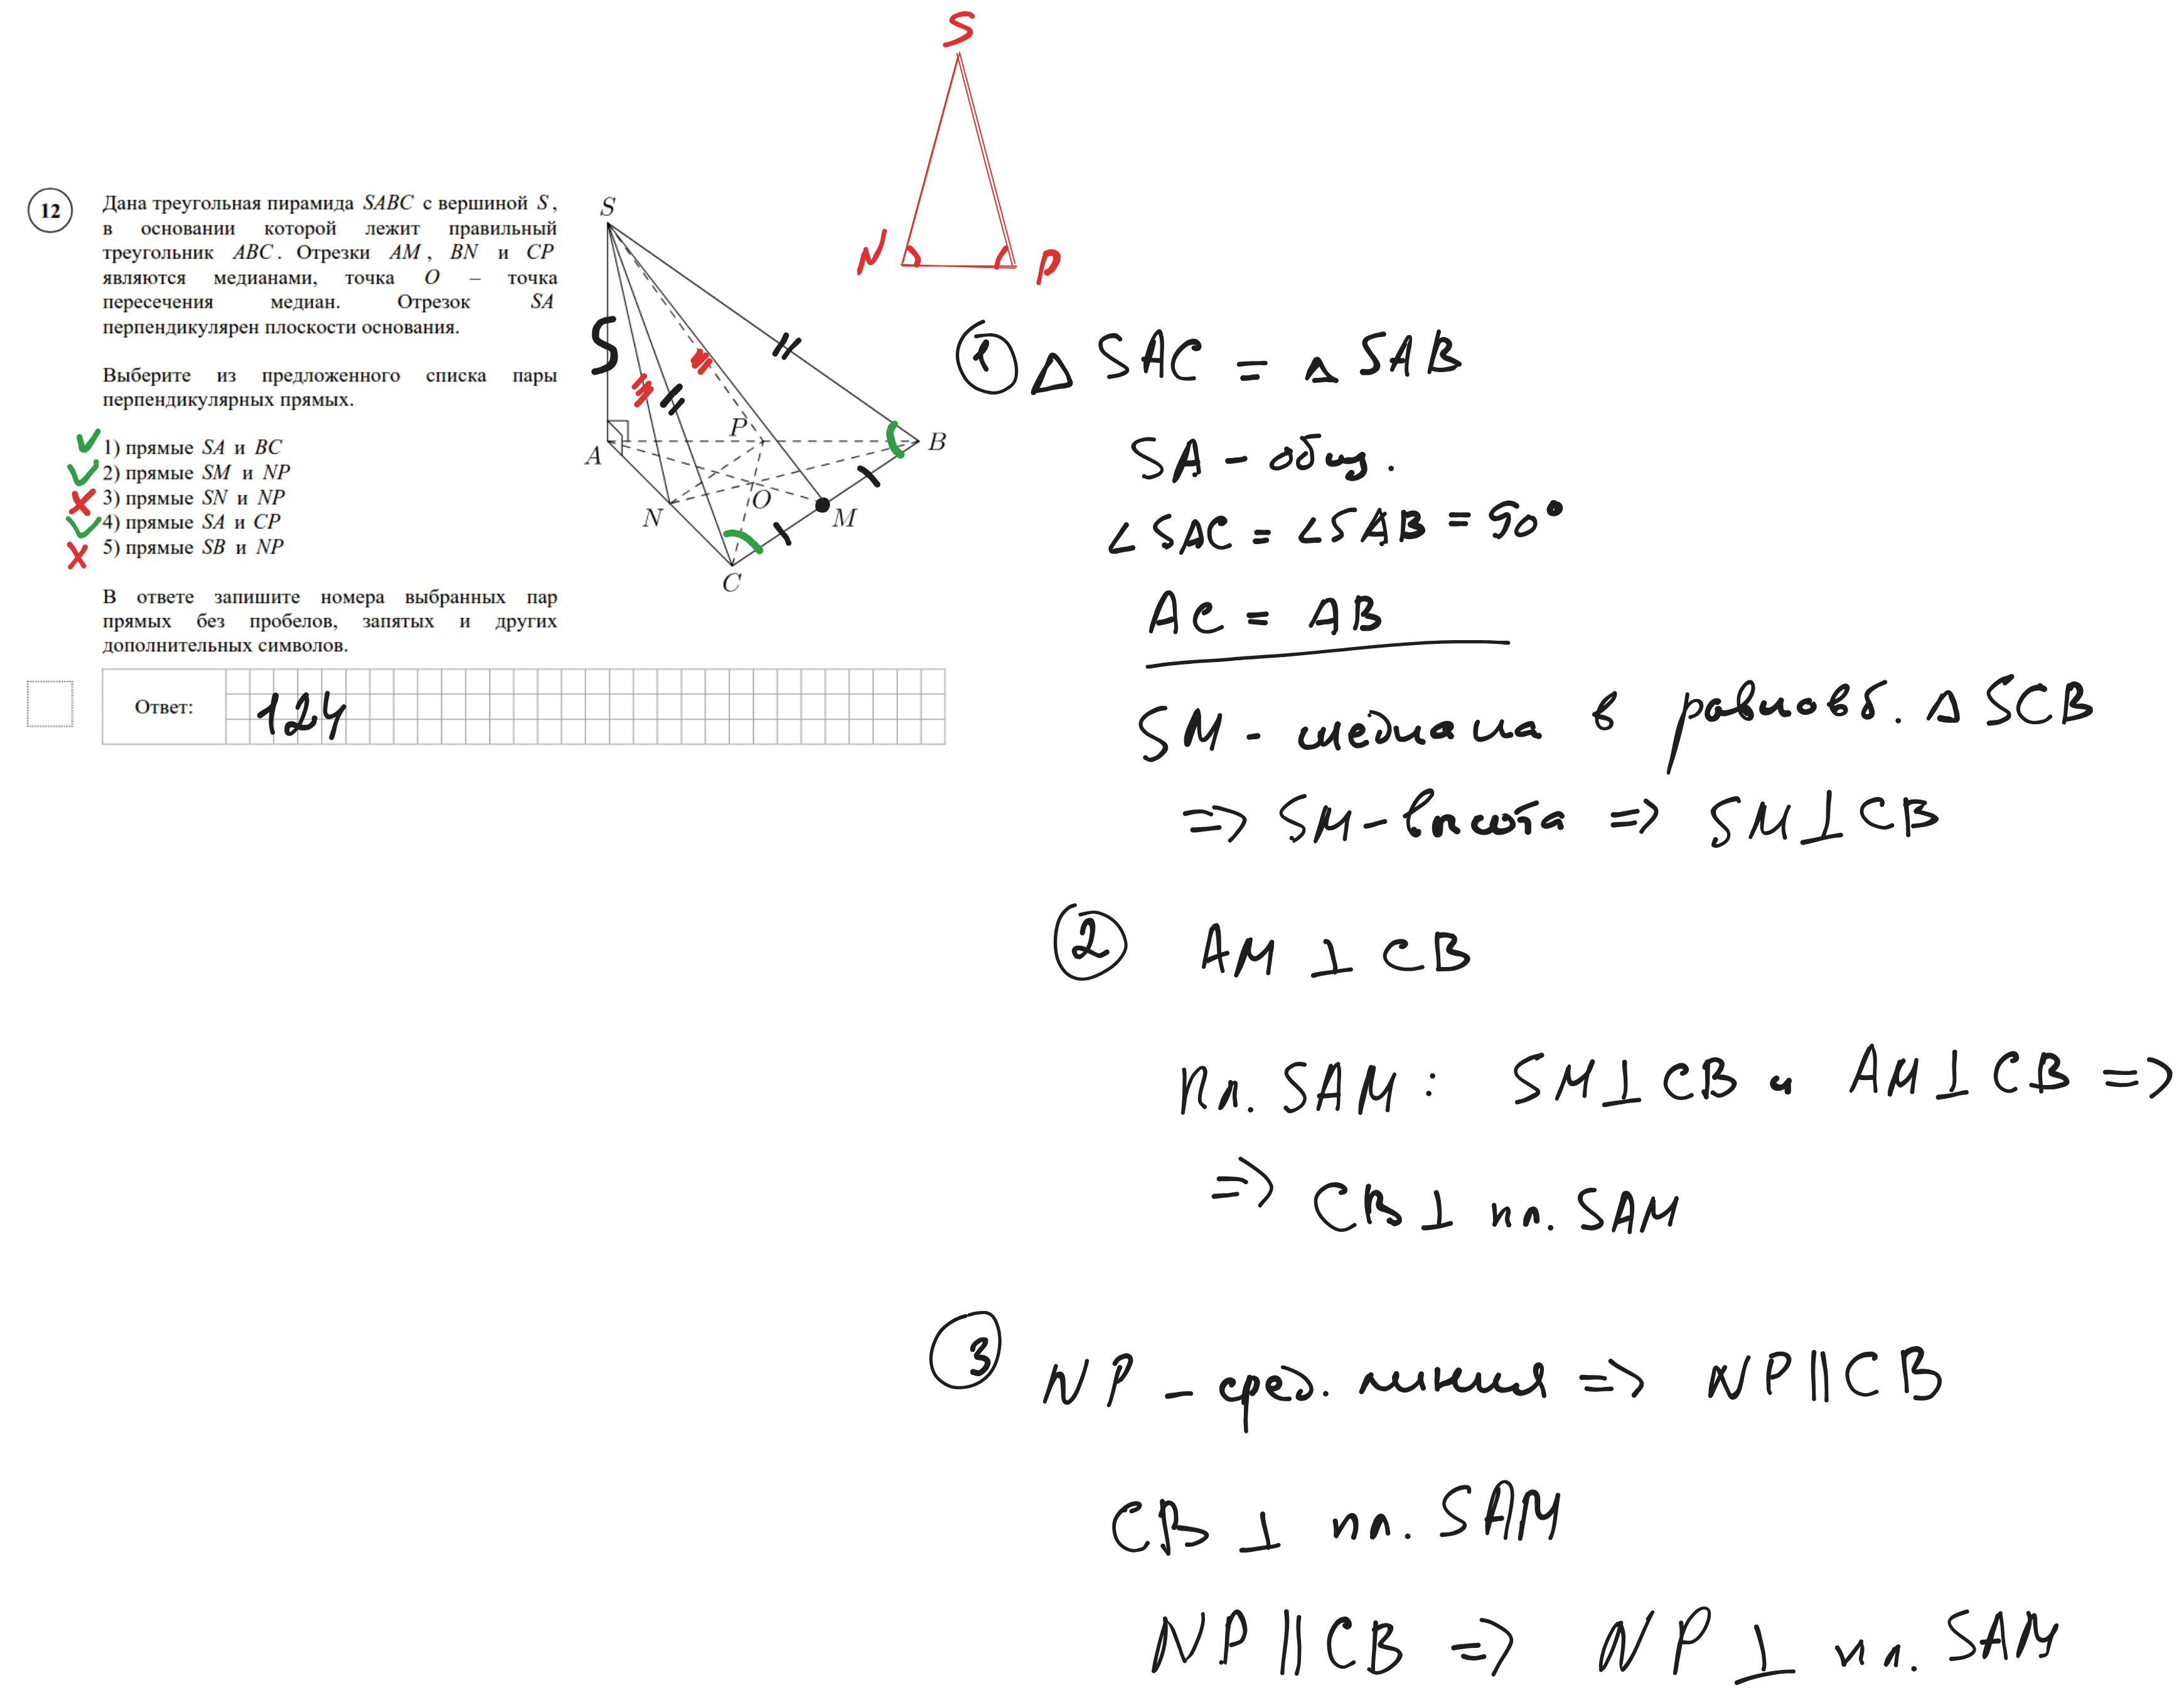 12
Дана треугольная пирамида SABC с вершиной S,
в основании которой лежит правильный
треугольник ABC. Отрезки AM, BN и CP
являются медианами, точка O – точка
пересечения медиан. Отрезок SA
перпендикулярен плоскости основания.
Выберите из предложенного списка пары
перпендикулярных прямых.
1) прямые SA и BC
2) прямые SM и NP
3) прямые SN и NP
4) прямые SA и CP
5) прямые SB и NP
В ответе запишите номера выбранных пар
прямых без пробелов, запятых и других
дополнительных символов.
Ответ: 124
S
A
P
B
N
O
M
C
S
N
P
1 △ SAC = △ SAB
SA - общ.
∠SAC = ∠SAB = 90°
AC = AB
SM - медиана в равноб. △ SCB
=> SM - высота => SM ⊥ CB
2 AM ⊥ CB
пл. SAM : SM ⊥ CB и AM ⊥ CB =>
=> CB ⊥ пл. SAM
3 NP - сред. линия => NP || CB
CB ⊥ пл. SAM
NP || CB => NP ⊥ пл. SAM